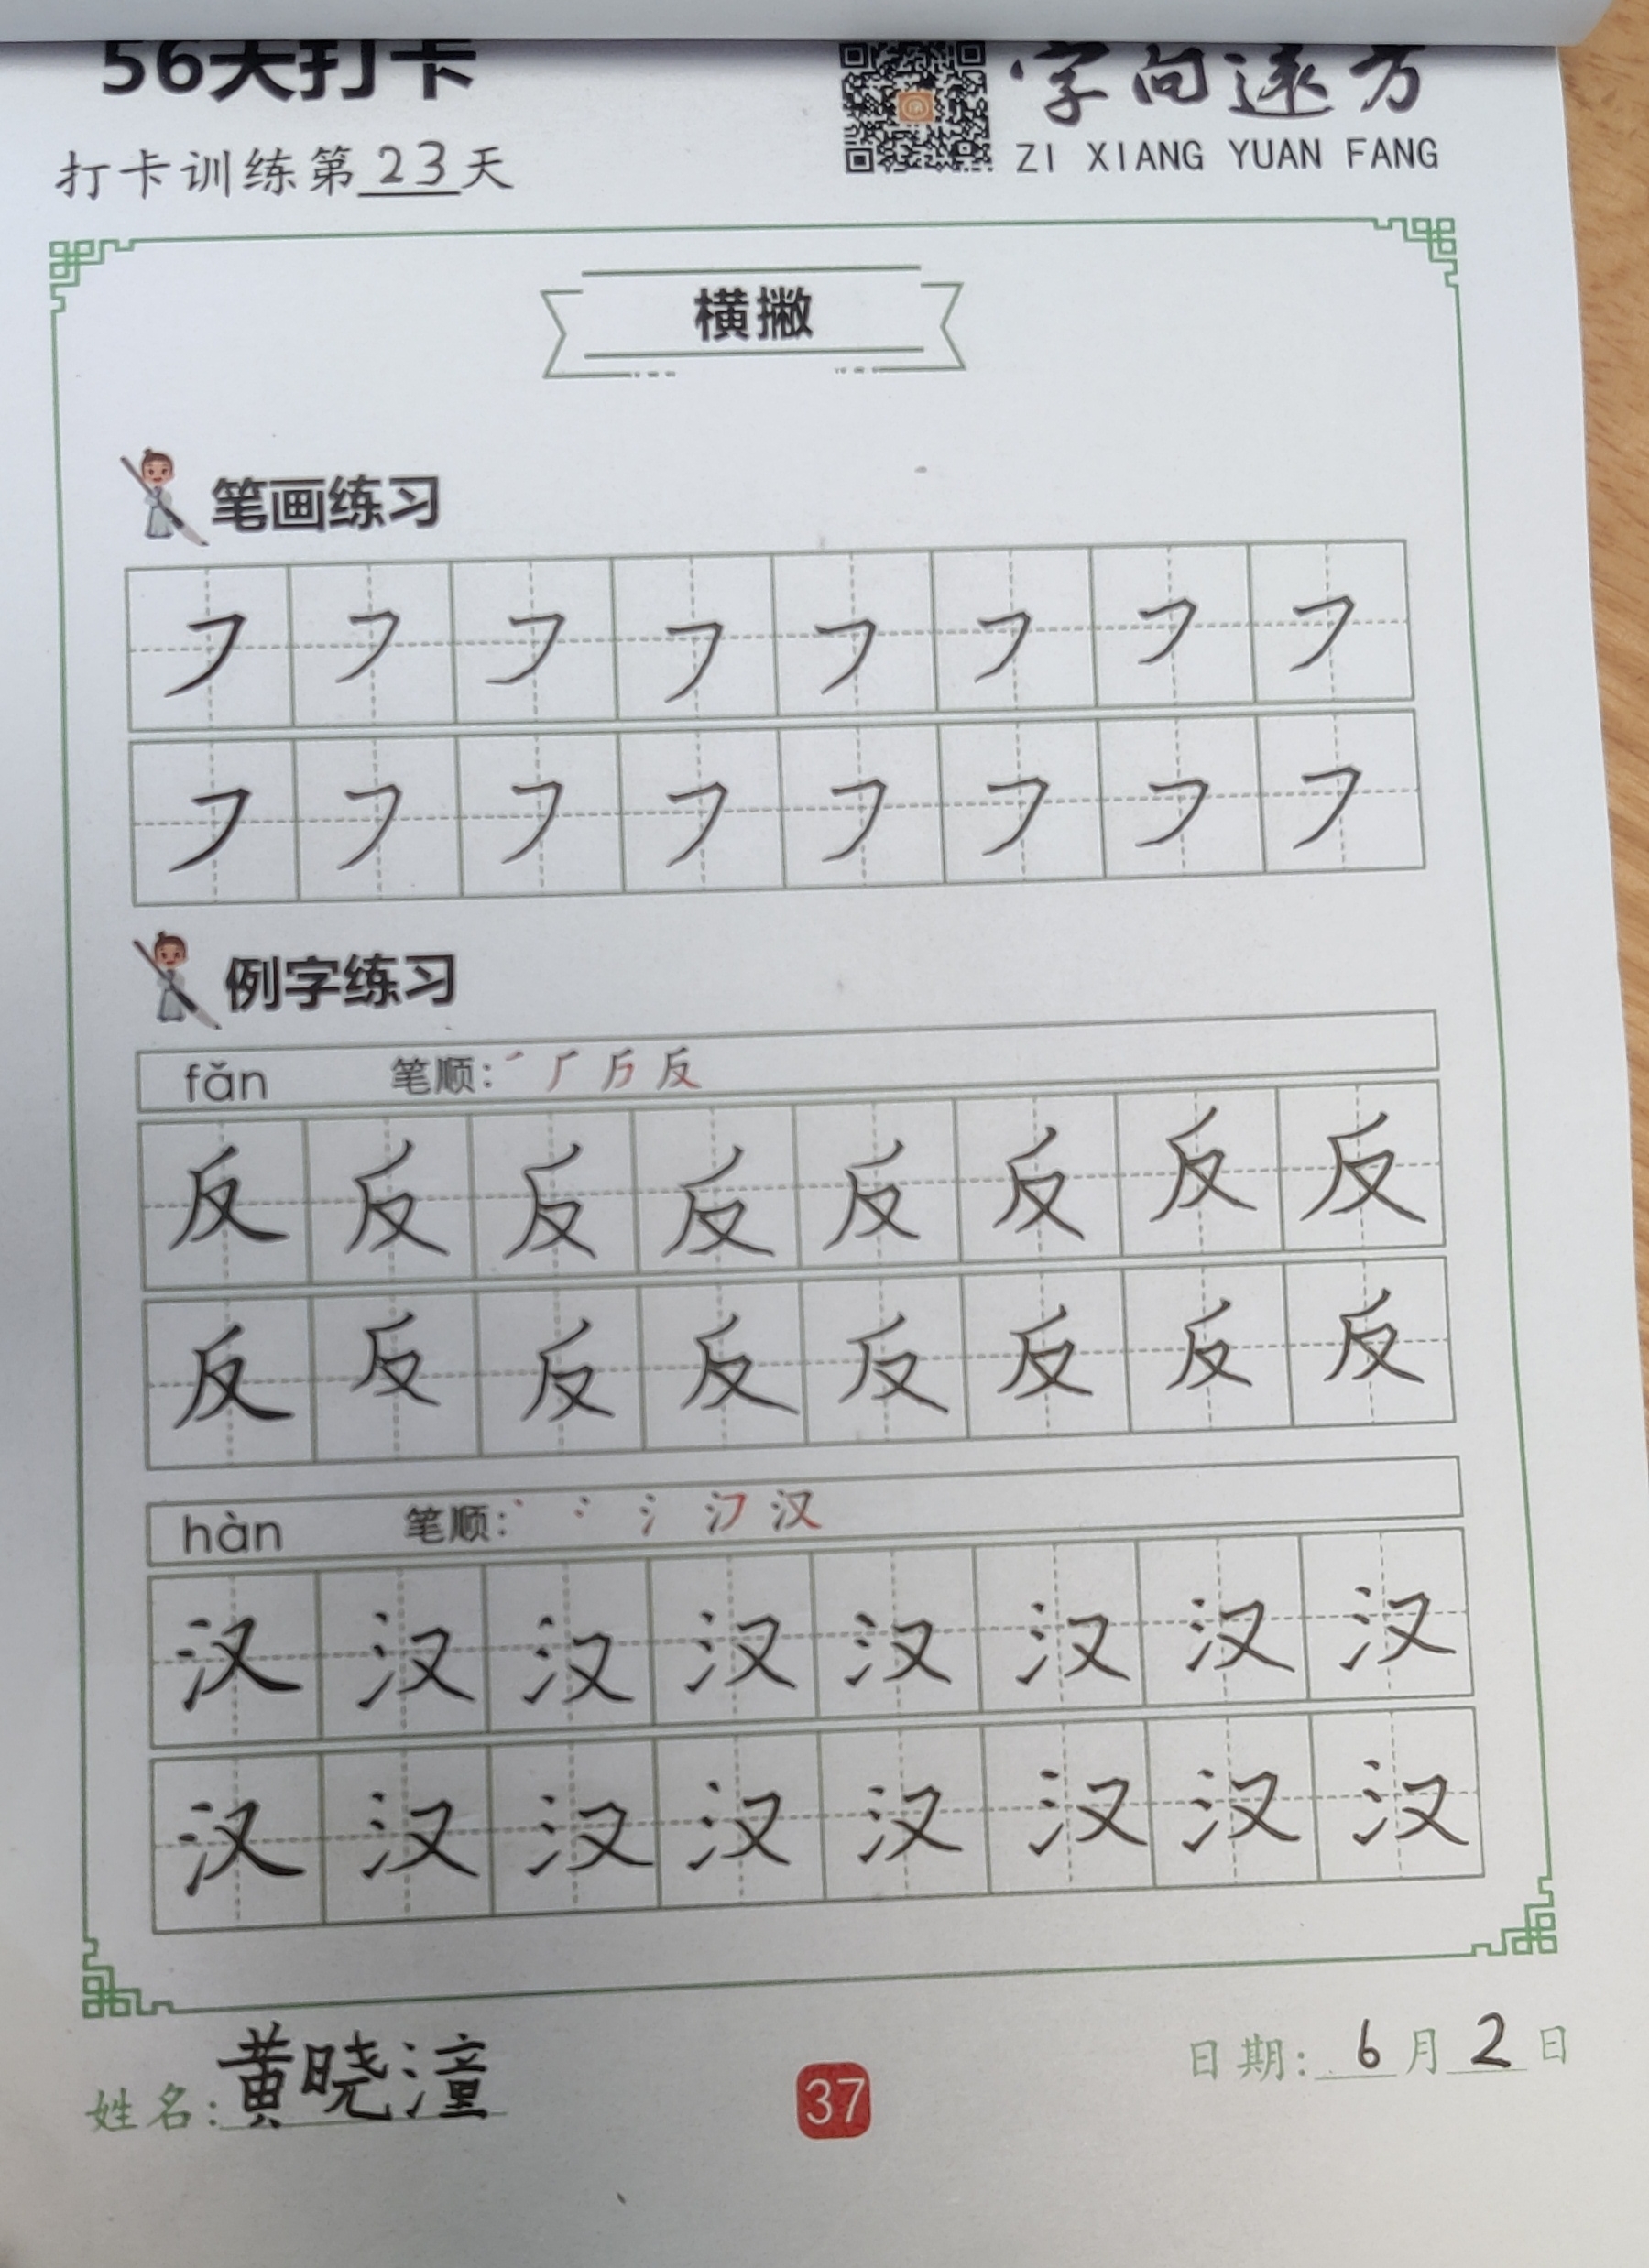 56天打卡
字向远方
ZI XIANG YUAN FANG
打卡训练第23天
横撇
笔画练习
㇇㇇㇇㇇㇇㇇㇇㇇
㇇㇇㇇㇇㇇㇇㇇㇇
例字练习
fǎn 笔顺: 反
反反反反反反反反
反反反反反反反反
hàn 笔顺: 汉
汉汉汉汉汉汉汉汉
汉汉汉汉汉汉汉汉
姓名:黄晓潼
37
日期: 6月2日